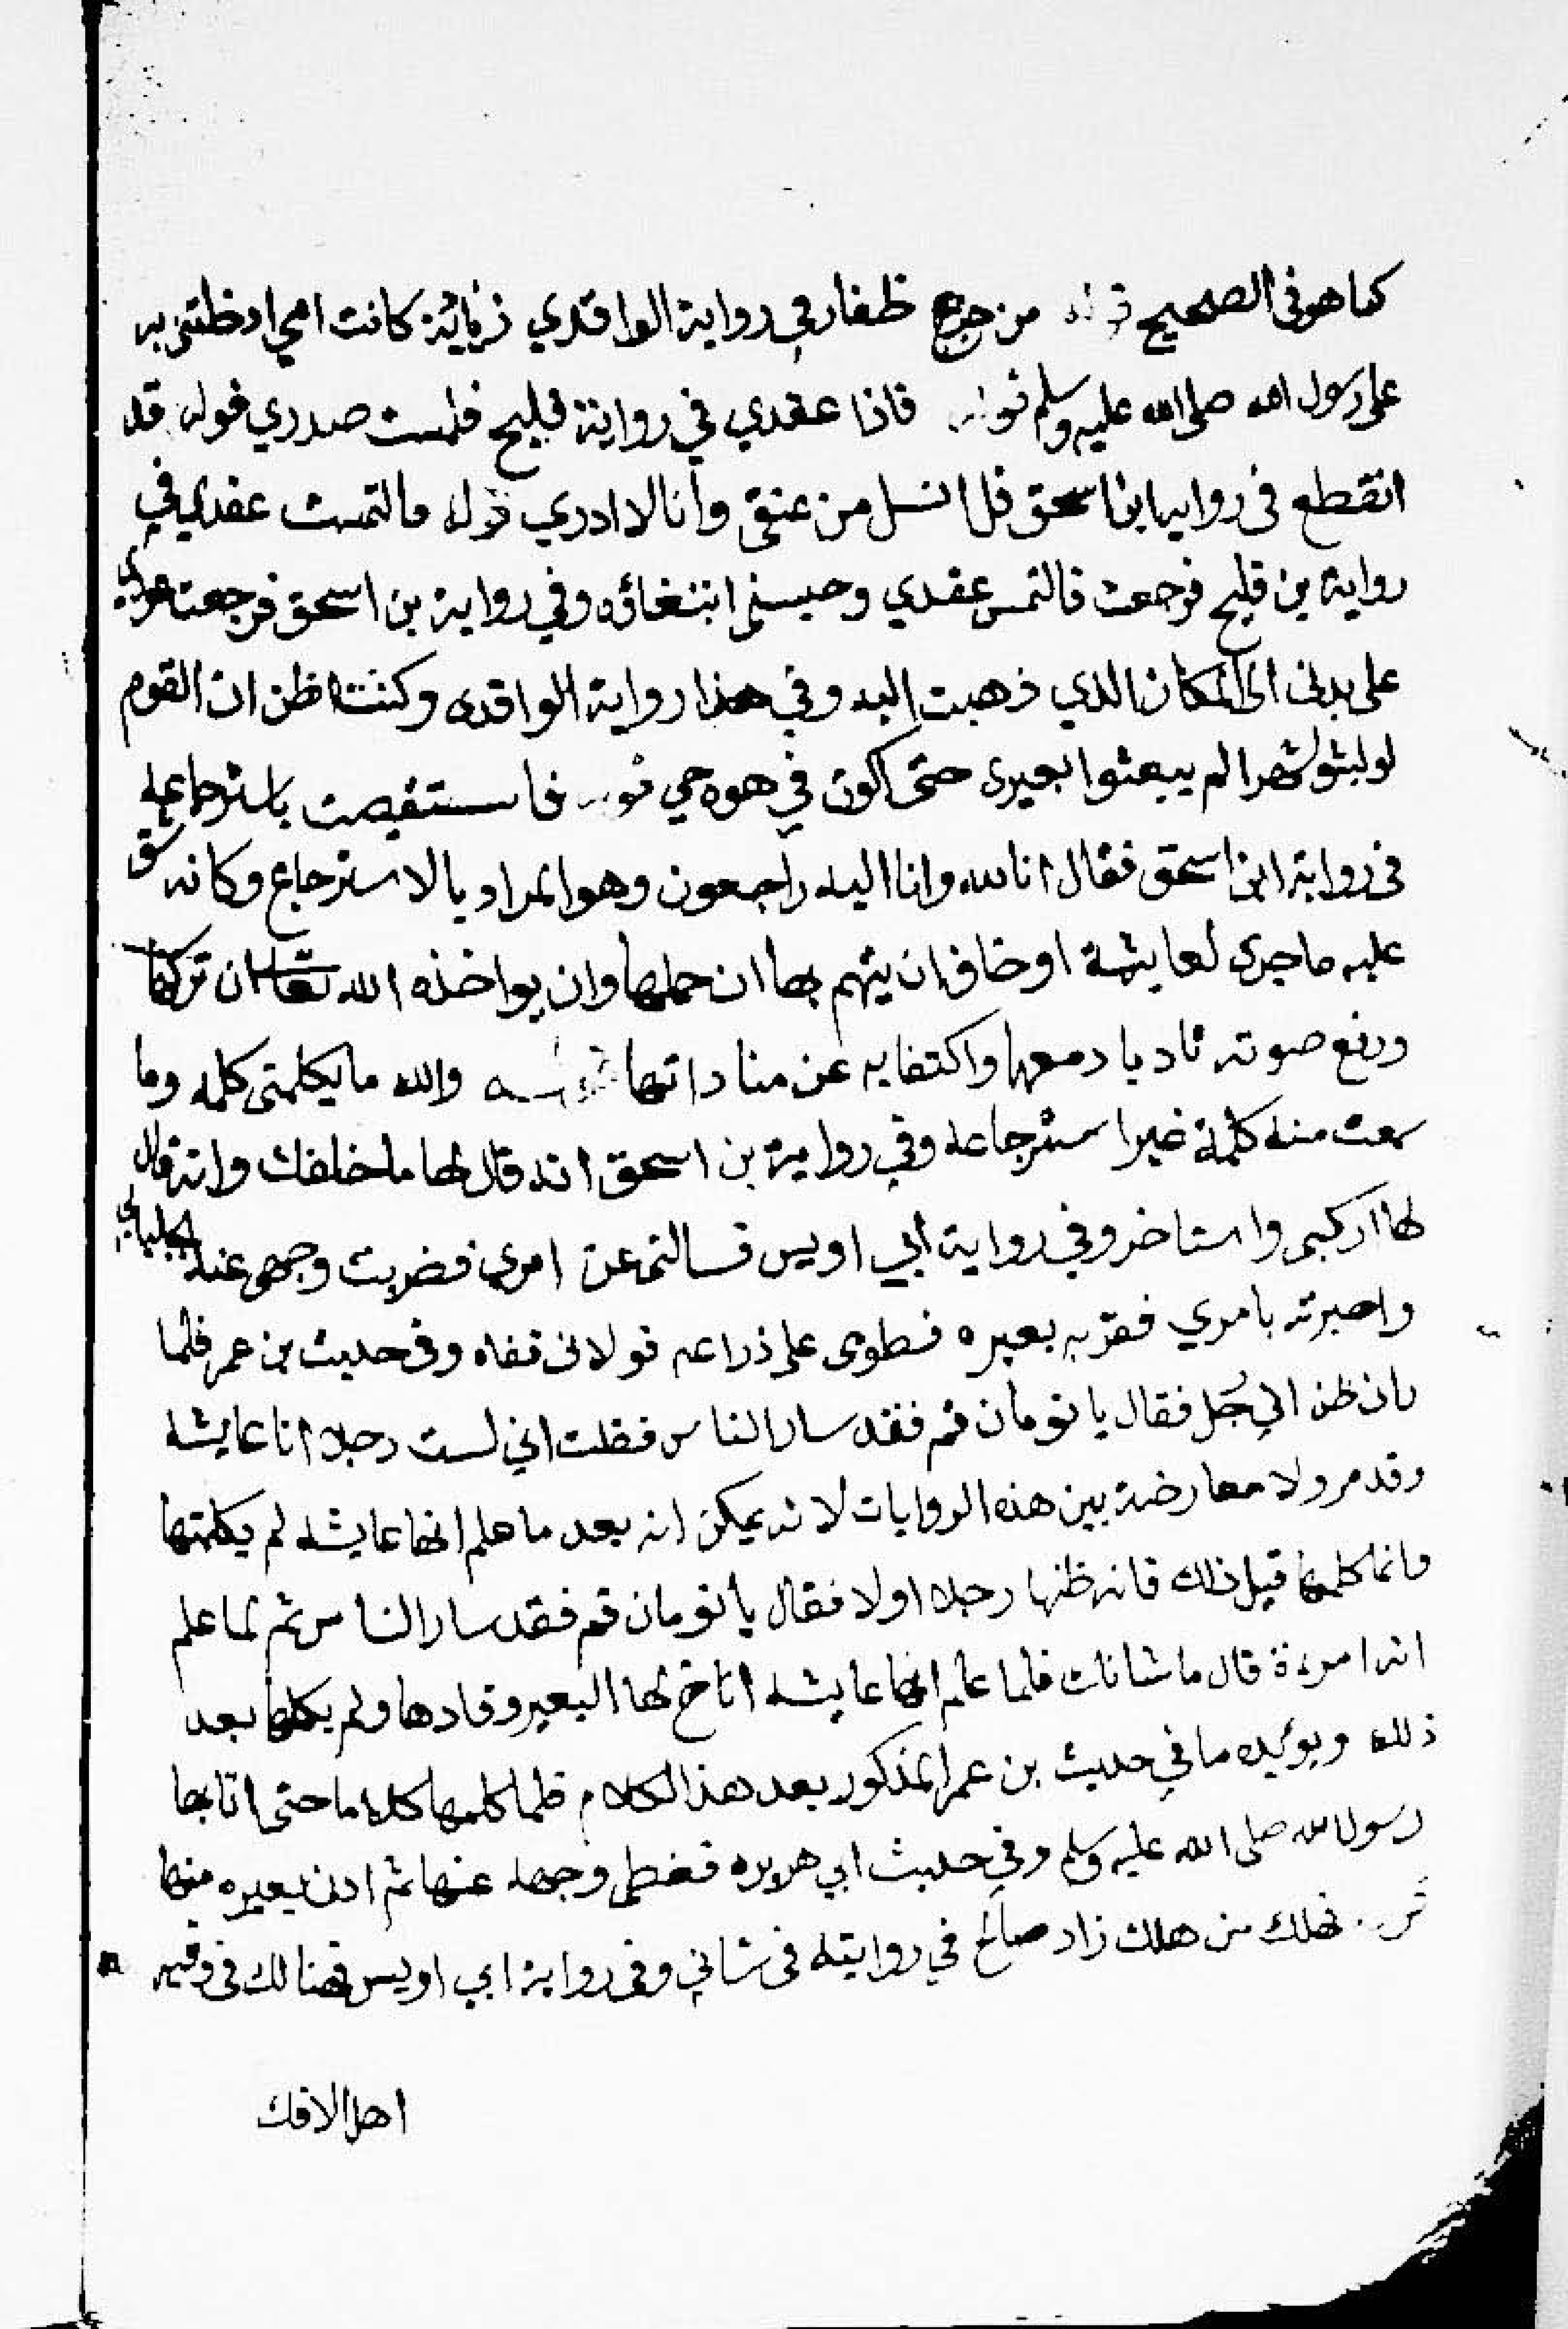 كما هو في الصحيح قوله من جزع ظفار في رواية الواقدي زيادة كانت امي ادخلتني به
على رسول الله صلى الله عليه وسلم قوله فاذا عقدي في رواية فليح فلمست صدري قوله قد
انقطع في رواية ابن اسحق قد انسل من عنقي وانا لا ادري قوله فالتمست عقدي في
رواية بن فليح فرجعت فالتمس عقدي وحبسني ابتغاؤه وفي رواية بن اسحق فرجعت عودي
على بدئي الى المكان الذي ذهبت اليه وفي هذا رواية الواقدي وكنت اظن ان القوم
لو لبثوا شهرا لم يبعثوا بعيري حتى اكون في هودجي قوله فاستيقظت باسترجاعه
في رواية ابن اسحق فقال انا لله وانا اليه راجعون وهو المراد بالاسترجاع وكانه شق
عليه ما جرى لعايشة او خاف ان يتهم بها ان حملها وان يواخذه الله تعالى ان تركها
ورفع صوته تادبا معها واكتفا به عن مناداتها قوله والله ما يكلمني كلمه وما
سمعت منه كلمة غير استرجاعه وفي رواية بن اسحق انه قال لها ما خلفك وانه قال
لها اركبي واستاخر وفي رواية أبي اويس فسالني عن امري فضربت وجهي عنه بجلبابي
واخبرته بامري فقرب بعيره فوطى على ذراعه فولاني قفاه وفي حديث بن عمر فلما
راني ظن اني رجل فقال يا نومان قم فقد سار الناس فقلت اني لست رجلا انا عايشه
وقد مر ولا معارضة بين هذه الروايات لانه يمكن انه بعد ما علم انها عايشه لم يكلمها
وانما كلمها قبل ذلك فانه ظنها رجلا اولا فقال يا نومان قم فقد سار الناس ثم لما علم
انه امرءة قال ما شانك فلما علم انها عايشه اناخ لها البعير وقادها ولم يكلمها بعد
ذلك ويؤيده ما في حديث بن عمر المذكور بعد هذا الكلام فلما كلمها كلاما حتى اتا بها
رسول الله صلى الله عليه وسلم وفي حديث ابي هريره فغطى وجهه عنها ثم ادنى بعيره منها
فهلك من هلك زاد صالح في روايته في شاني وفي رواية ابي اويس فهنالك في وفيه
اهل الافك